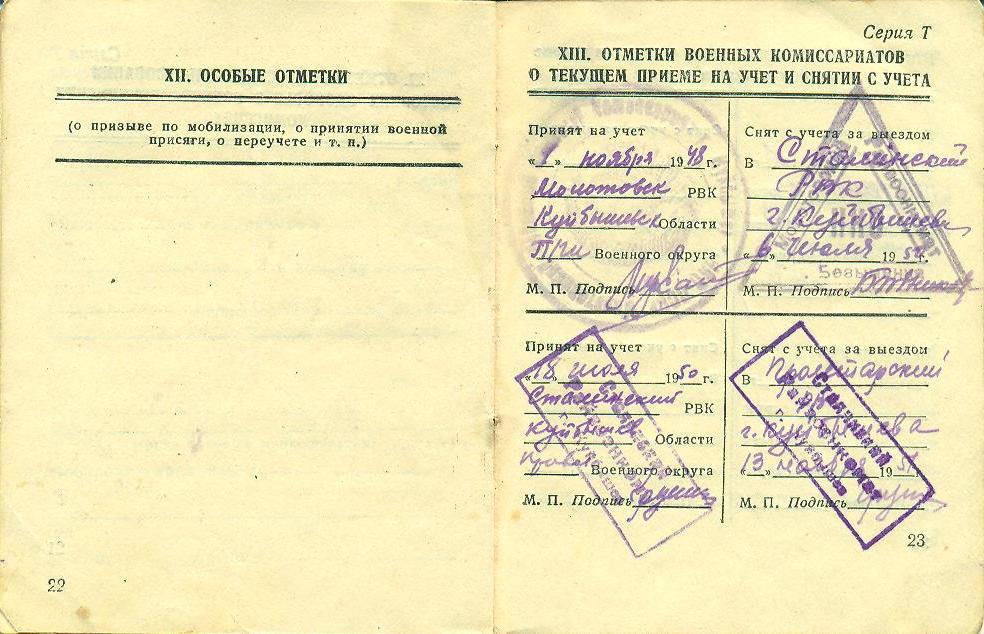 XII. ОСОБЫЕ ОТМЕТКИ
(о призыве по мобилизации, о принятии военной
присяги, о переучете и т. п.)
22
Серия Т
XIII. ОТМЕТКИ ВОЕННЫХ КОМИССАРИАТОВ
О ТЕКУЩЕМ ПРИЕМЕ НА УЧЕТ И СНЯТИИ С УЧЕТА
Принят на учет
„1" ноября 1948 г.
Молотовск РВК
Куйбышевск Области
При Военного округа
М. П. Подпись
Снят с учета за выездом
в Сталинский
РВК
г. Куйбышева
„6" июля 195 г.
М. П. Подпись
Принят на учет
„18" июля 1950 г.
Сталинский РВК
Куйбышев Области
Военного округа
М. П. Подпись
Снят с учета за выездом
в Пролетарский
г. Куйбышева
„13" 195 г.
М. П. Подпись
Сталинский
Райвоенкомат
г. Куйбышев
23